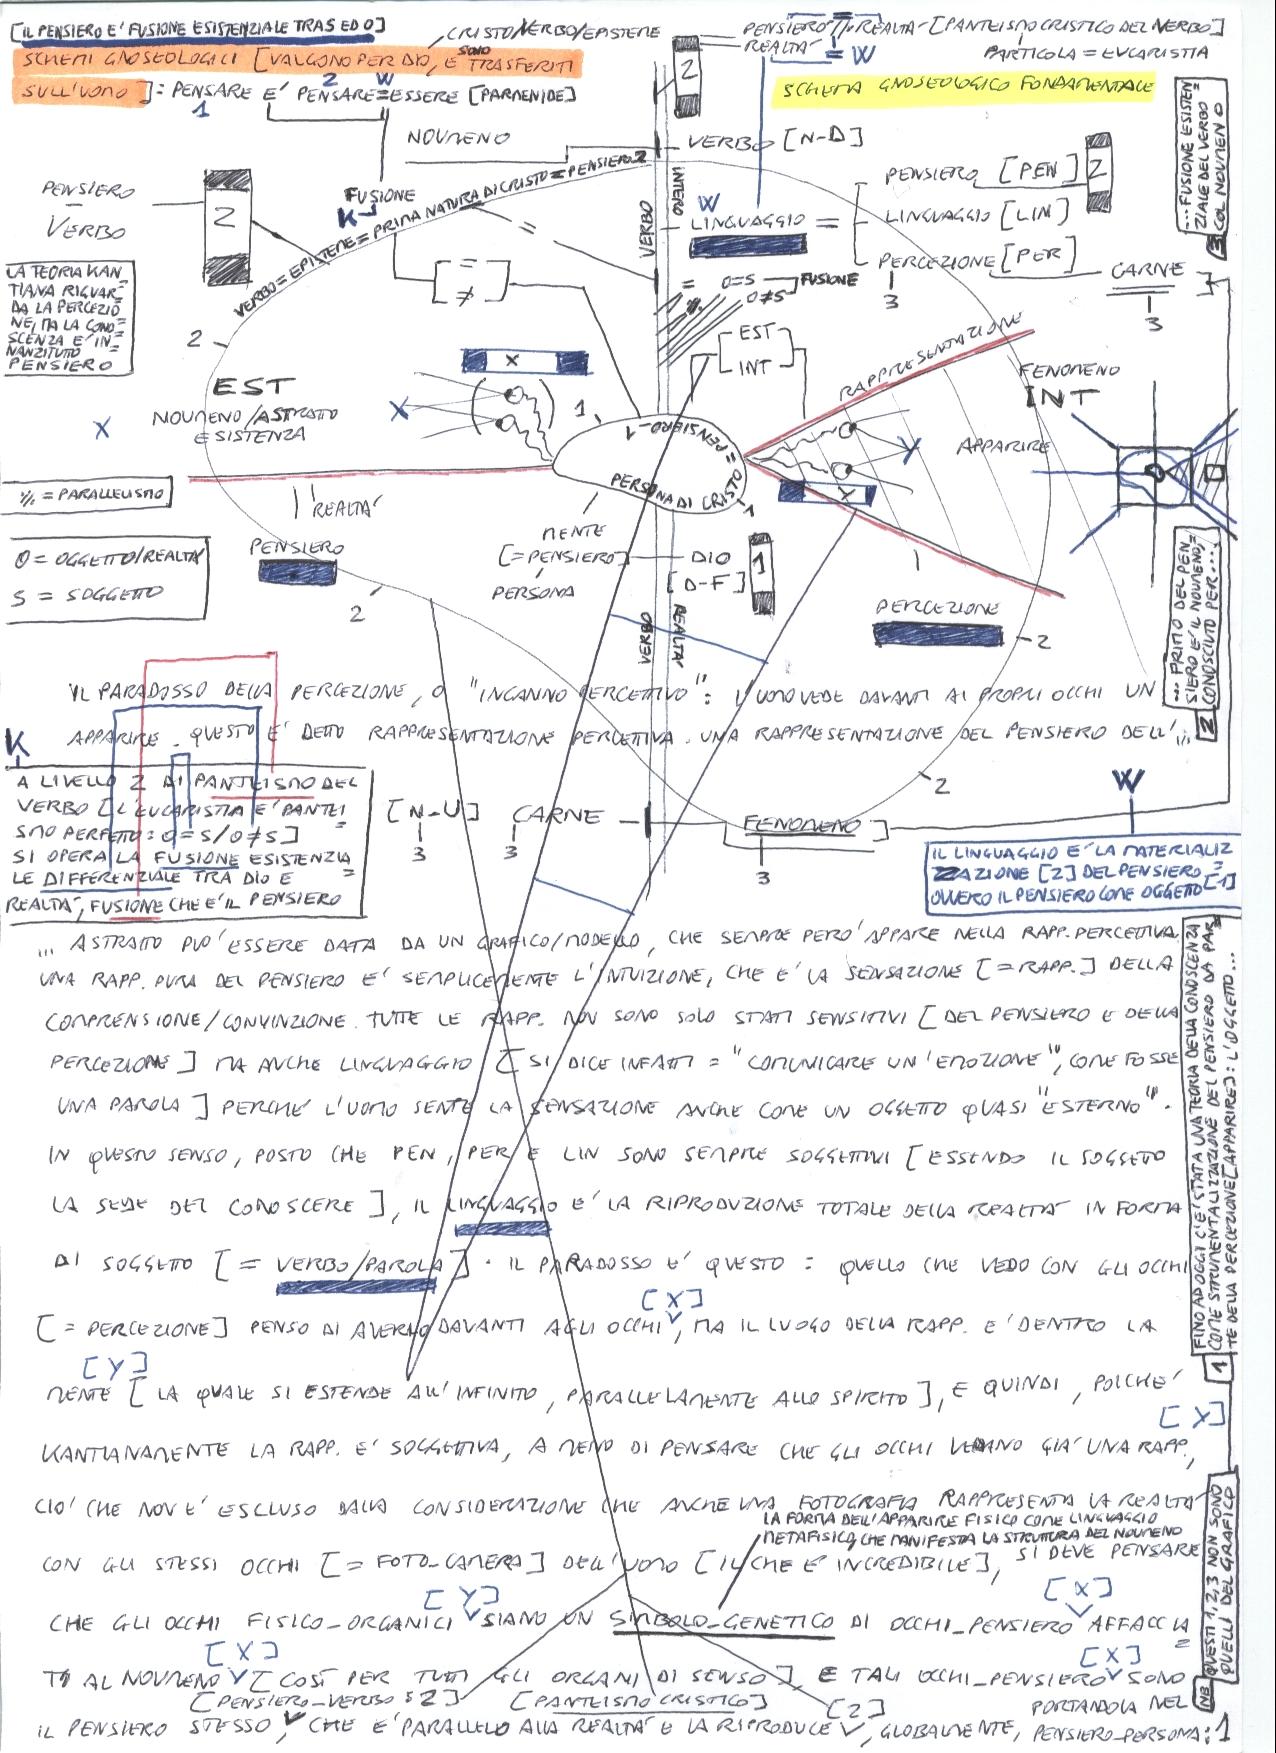 [IL PENSIERO E' FUSIONE ESISTENZIALE TRA S ED O]
SCHEMI GNOSEOLOGICI [VALGONO PER DIO, E SONO TRASFERITI
SULL'UOMO]: PENSARE E' PENSARE=ESSERE [PARMENIDE]
2 W
1
CRISTO/VERBO/EPISTEME
PENSIERO REALTA' - [PANTEISMO CRISTICO DEL VERBO]
REALTA' = W
PARTICOLA = EUCARISTIA
SCHEMA GNOSEOLOGICO FONDAMENTALE
2
NOUMENO
VERBO [N-D]
PENSIERO
VERBO
2
FUSIONE
K
VERBO=EPISTEME=PRIMA NATURA DI CRISTO=PENSIERO 2
INTERO
VERBO
W
LINGUAGGIO =
PENSIERO [PEN] 2
LINGUAGGIO [LIM]
PERCEZIONE [PER]
3
CARNE
3
... FUSIONE ESISTEN=
ZIALE DEL VERBO
COL NOUMENO
3
=
≠
= O=S FUSIONE
%. O≠S
EST
INT
LA TEORIA KAN
TIANA RIGUAR=
DA LA PERCEZIO
NE, MA LA CONO=
SCENZA E' IN=
NANZITUTTO
PENSIERO
2
EST
NOUMENO/ASTRATTO
ESISTENZA
X
X
X
1
PENSIERO-1
PERSONA DI CRISTO =
1
RAPPRESENTAZIONE
FENOMENO
INT
APPARIRE
Y
Y
%. = PARALLELISMO
REALTA'
1
O = OGGETTO/REALTA'
S = SOGGETTO
PENSIERO
2
MENTE
[=PENSIERO]
PERSONA
DIO
[D-F]
1
VERBO
REALTA'
PERCEZIONE
2
1
... PRIMO DEL PEN
SIERO E' IL NOUMENO,
CONOSCIUTO PER...
2
IL PARADOSSO DELLA PERCEZIONE, O "INGANNO PERCETTIVO": L'UOMO VEDE DAVANTI AI PROPRI OCCHI UN
APPARIRE. QUESTO E' DETTO RAPPRESENTAZIONE PERCETTIVA. UNA RAPPRESENTAZIONE DEL PENSIERO DELL'...
K
A LIVELLO 2 DI PANTEISMO DEL
VERBO [L'EUCARISTIA E' PANTEI
SMO PERFETTO: O=S/O≠S]
SI OPERA LA FUSIONE ESISTENZIA=
LE DIFFERENZIALE TRA DIO E
REALTA', FUSIONE CHE E' IL PENSIERO
[N-U]
3
CARNE
3
FENOMENO
3
2
W
IL LINGUAGGIO E' LA MATERIALIZ
ZAZIONE [2] DEL PENSIERO=
OVVERO IL PENSIERO COME OGGETTO [1]
... ASTRATTO PUO' ESSERE DATA DA UN GRAFICO/MODELLO, CHE SEMPRE PERO' APPARE NELLA RAPP. PERCETTIVA.
UNA RAPP. PURA DEL PENSIERO E' SEMPLICEMENTE L'INTUIZIONE, CHE E' LA SENSAZIONE [=RAPP.] DELLA
COMPRENSIONE/CONVINZIONE. TUTTE LE RAPP. NON SONO SOLO STATI SENSITIVI [DEL PENSIERO E DELLA
PERCEZIONE] MA ANCHE LINGUAGGIO [SI DICE INFATTI = "COMUNICARE UN'EMOZIONE", COME FOSSE
UNA PAROLA] PERCHE' L'UOMO SENTE LA SENSAZIONE ANCHE COME UN OGGETTO QUASI "ESTERNO".
IN QUESTO SENSO, POSTO CHE PEN, PER E LIN SONO SEMPRE SOGGETTIVI [ESSENDO IL SOGGETTO
LA SEDE DEL CONOSCERE], IL LINGUAGGIO E' LA RIPRODUZIONE TOTALE DELLA REALTA' IN FORMA
DI SOGGETTO [= VERBO/PAROLA]. IL PARADOSSO E' QUESTO: QUELLO CHE VEDO CON GLI OCCHI
[X]
[= PERCEZIONE] PENSO DI AVERLO DAVANTI AGLI OCCHI, MA IL LUOGO DELLA RAPP. E' DENTRO LA
[Y]
MENTE [LA QUALE SI ESTENDE ALL'INFINITO, PARALLELAMENTE ALLO SPIRITO], E QUINDI, POICHE'
[X]
KANTIANAMENTE LA RAPP. E' SOGGETTIVA, A MENO DI PENSARE CHE GLI OCCHI VEDANO GIA' UNA RAPP.,
CIO' CHE NON E' ESCLUSO DALLA CONSIDERAZIONE CHE ANCHE UNA FOTOGRAFIA RAPPRESENTA LA REALTA'
LA FORMA DELL'APPARIRE FISICO COME LINGUAGGIO
METAFISICO, CHE MANIFESTA LA STRUTTURA DEL NOUMENO
CON GLI STESSI OCCHI [= FOTO_CAMERA] DELL'UOMO [IL CHE E' INCREDIBILE], SI DEVE PENSARE
[Y] [X]
CHE GLI OCCHI FISICO_ORGANICI SIANO UN SIMBOLO_GENETICO DI OCCHI_PENSIERO AFFACCIA=
[X] [X]
TI AL NOUMENO [COSI' PER TUTTI GLI ORGANI DI SENSO], E TALI OCCHI_PENSIERO SONO
[PENSIERO_VERBO: 2] [PANTEISMO CRISTICO] [2] PORTANDOLA NEL
IL PENSIERO STESSO, CHE E' PARALLELO ALLA REALTA' E LA RIPRODUCE, GLOBALMENTE, PENSIERO_PERSONA: 1
FINO AD OGGI C'E' STATA UNA TEORIA DELLA CONOSCENZA
COME STRUMENTALIZZAZIONE DEL PENSIERO DA PAR=
TE DELLA PERCEZIONE [APPARIRE]: L'OGGETTO...
1
QUESTI 1, 2, 3 NON SONO
QUELLI DEL GRAFICO
NB